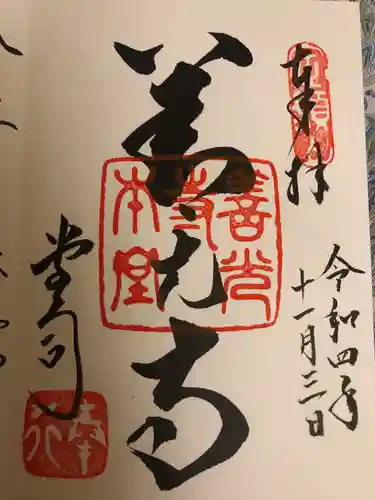 奉拝
令和四年
十一月三日
善光寺
善光
寺
本堂
堂司
奉行